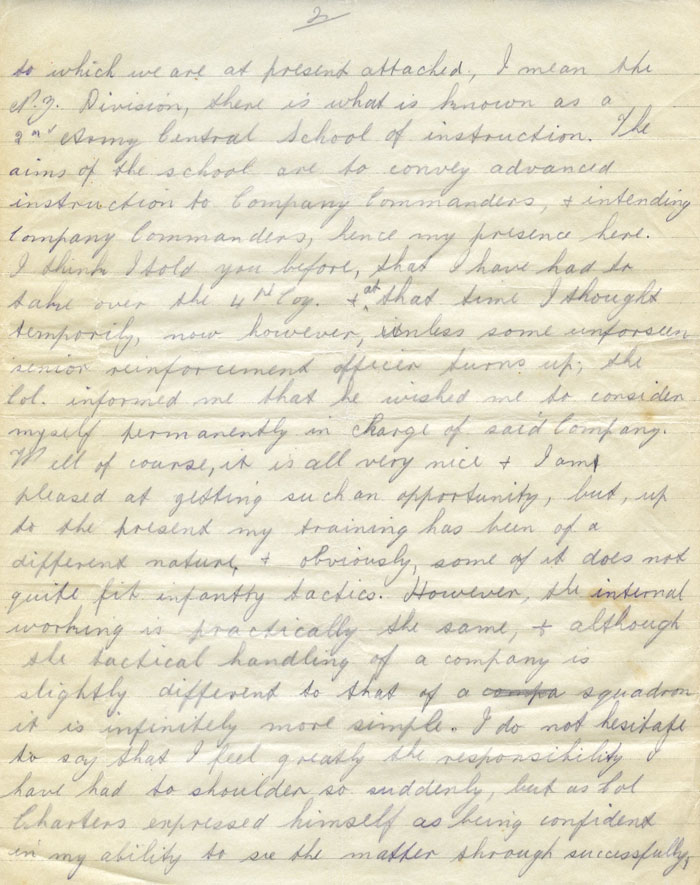 2
to which we are at present attached, I mean the
N.Z. Division, there is what is known as a
2nd Army Central School of instruction. The
aims of the school are to convey advanced
instruction to Company Commanders, & intending
Company Commanders, hence my presence here.
I think I told you before, that I have had to
take over the 4th Coy. & at that time I thought
temporily, now however, unless some unforseen
senior reinforcement officer turns up, the
Col. informed me that he wished me to consider
myself permanently in charge of said Company.
Well of course, it is all very nice & I am
pleased at getting such an opportunity, but, up
to the present my training has been of a
different nature, & obviously, some of it does not
quite fit infantry tactics. However, the internal
working is practically the same, & although
the tactical handling of a company is
slightly different to that of a compa squadron
it is infinitely more simple. I do not hesitate
to say that I feel greatly the responsibility I
have had to shoulder so suddenly, but as Col
Charters expressed himself as being confident
in my ability to see the matter through successfully,